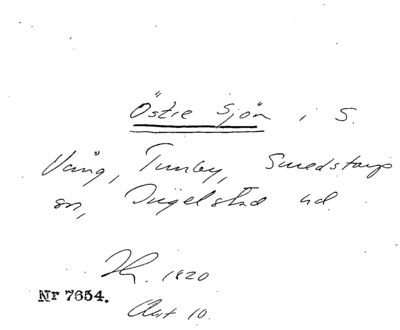 Östre Sjön i S.
Vång, Tunby, Smedstorps
sn, Ingelstad hd.
1820
Nr 7654.
Akt 10.